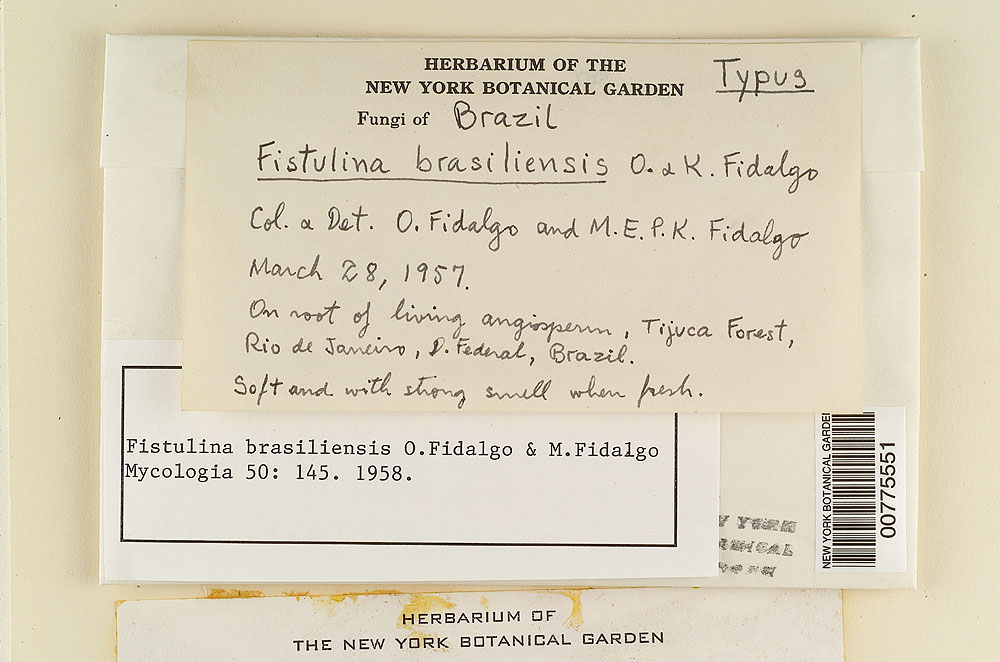 HERBARIUM OF THE
NEW YORK BOTANICAL GARDEN
Typus
Fungi of Brazil
Fistulina brasiliensis O. & K. Fidalgo
Col. & Det. O. Fidalgo and M.E.P.K. Fidalgo
March 28, 1957.
On root of living angiosperm, Tijuca Forest,
Rio de Janeiro, D. Federal, Brazil.
Soft and with strong smell when fresh.
Fistulina brasiliensis O.Fidalgo & M.Fidalgo
Mycologia 50: 145. 1958.
NEW YORK BOTANICAL GARDEN
00775551
YORK
HERBARIUM OF
THE NEW YORK BOTANICAL GARDEN